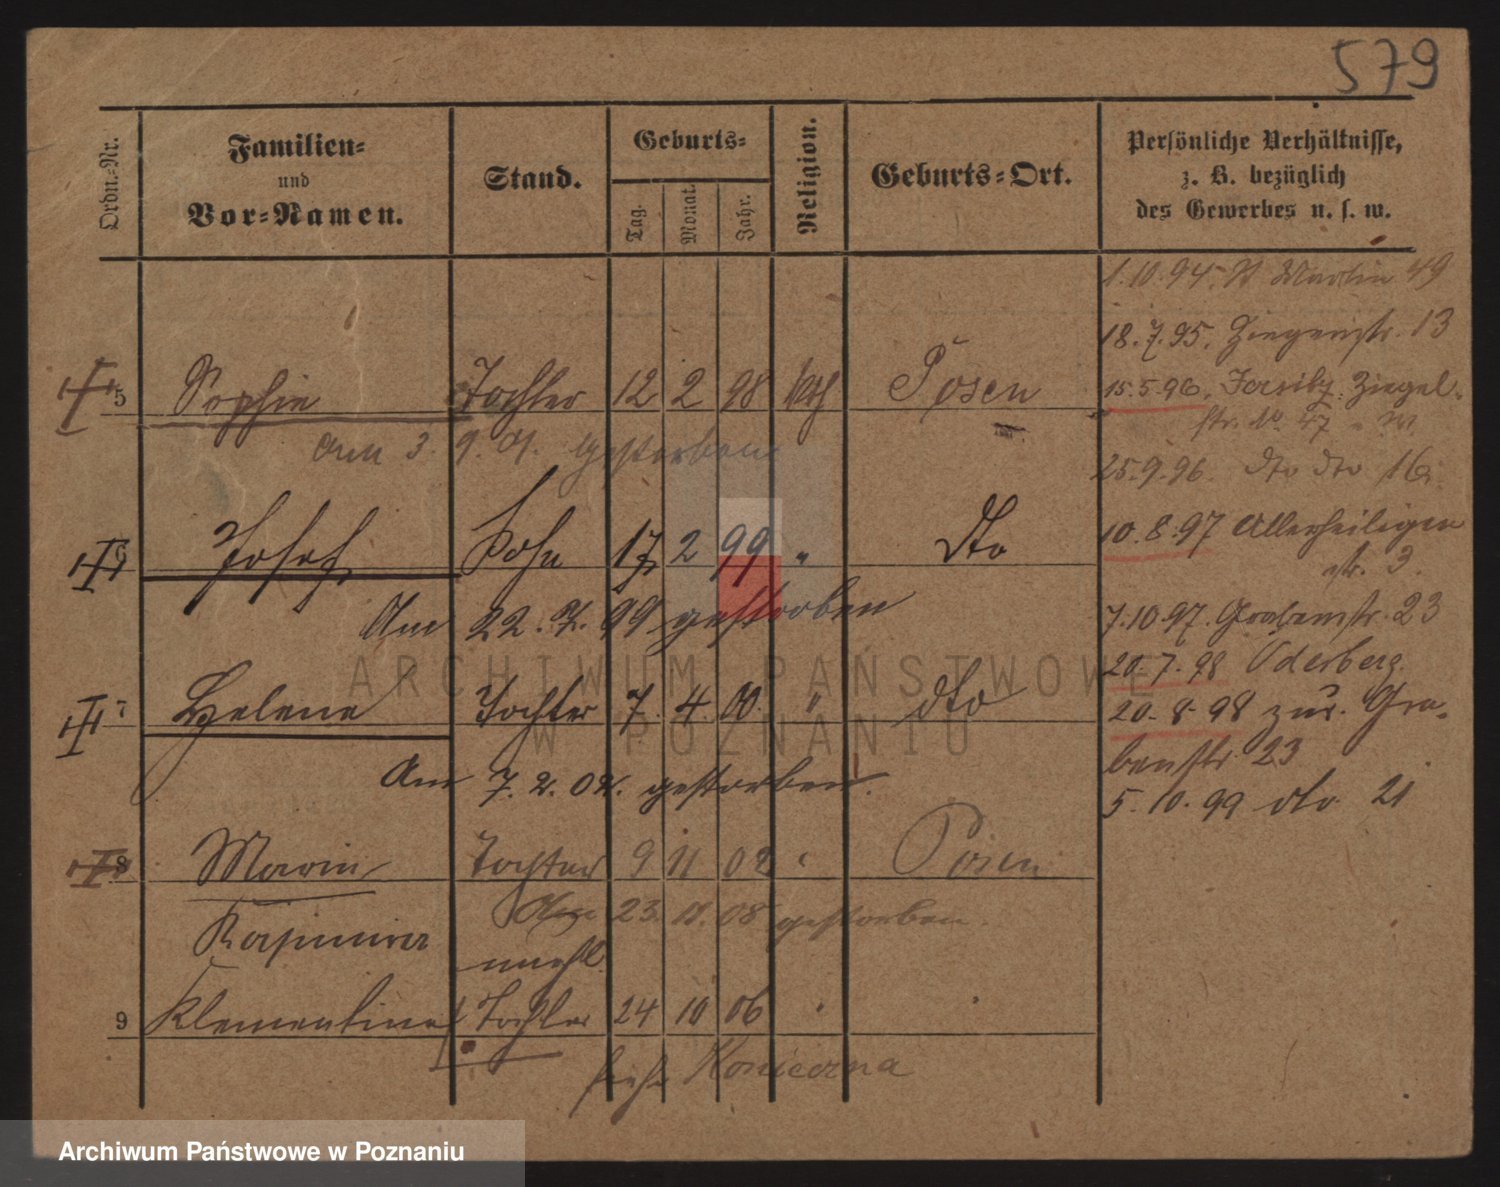 579
Ordn.-Nr.
Familien-
und
Vor-Namen.
Stand.
Geburts-
Tag.
Monat.
Jahr.
Religion.
Geburts-Ort.
Persönliche Verhältnisse,
z. B. bezüglich
des Gewerbes u. s. w.
1.10.94. St Martin 49
18.7.95. Ziegenstr. 13
5 Sophie Tochter 12 2 98 kath Posen
15.5.96. Jersitz, Ziegel-
str. No. 47
am 3. 9. 01. gestorben
25.9.96. dto dto 16
6 Josef Sohn 17 2 99 " dto
10.8.97 Allerheiligen
str. 3.
Am 22. 7. 99 gestorben
7.10.97. Grabenstr. 23
20.7.98 Oderberg.
7 Helene Tochter 7. 4. 00. " dto
20.8.98 zur. Gra-
benstr 23
Am 7. 2. 02. gestorben.
5.10.99 dto 21
8 Marie Tochter 9 11 02 " Posen
Am 23. 11. 08 gestorben.
Kasimira
unehl.
9 Klementine Tochter 24 10 06 " "
siehe Konieczna
ARCHIWUM PAŃSTWOWE
W POZNANIU
Archiwum Państwowe w Poznaniu